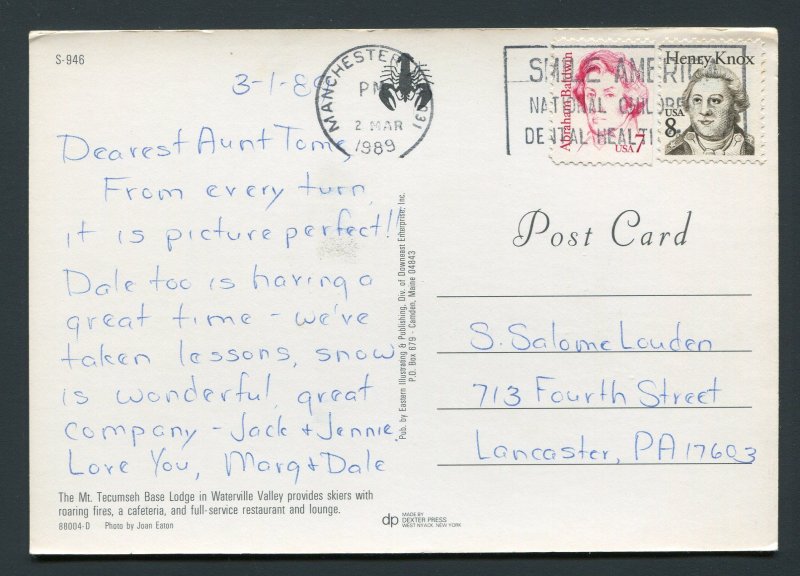 S-946
3-1-89
MANCHESTER 031
PM
2 MAR
1989
SMILE AMERICA
NATIONAL CHILDREN
DENTAL HEALTH
Abraham Baldwin
USA 7
Henry Knox
USA
8
Dearest Aunt Tome,
From every turn
it is picture perfect!
Dale too is having a
great time - we've
taken lessons, snow
is wonderful, great
company - Jack & Jennie.
Love You, Marg & Dale
The Mt. Tecumseh Base Lodge in Waterville Valley provides skiers with
roaring fires, a cafeteria, and full-service restaurant and lounge.
88004-D Photo by Joan Eaton
Pub. by Eastern Illustrating & Publishing, Div. of Downeast Enterprise, Inc.
P.O. Box 679 - Camden, Maine 04843
dp MADE BY
DEXTER PRESS
WEST NYACK, NEW YORK
Post Card
S. Salome Louden
713 Fourth Street
Lancaster, PA 17603